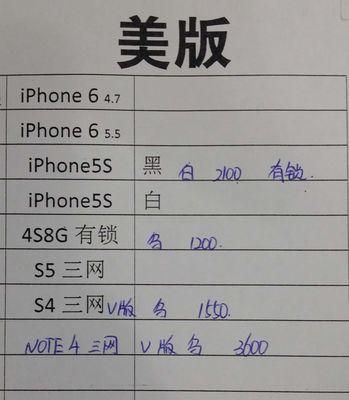 美版
iPhone 6 4.7
iPhone 6 5.5
iPhone5S 黑 白 2100 有锁.
iPhone5S 白
4S8G 有锁 鸟 1200.
S5 三网
S4 三网 V版 鸟 1550.
NOTE 4 三网 V版 鸟 3600